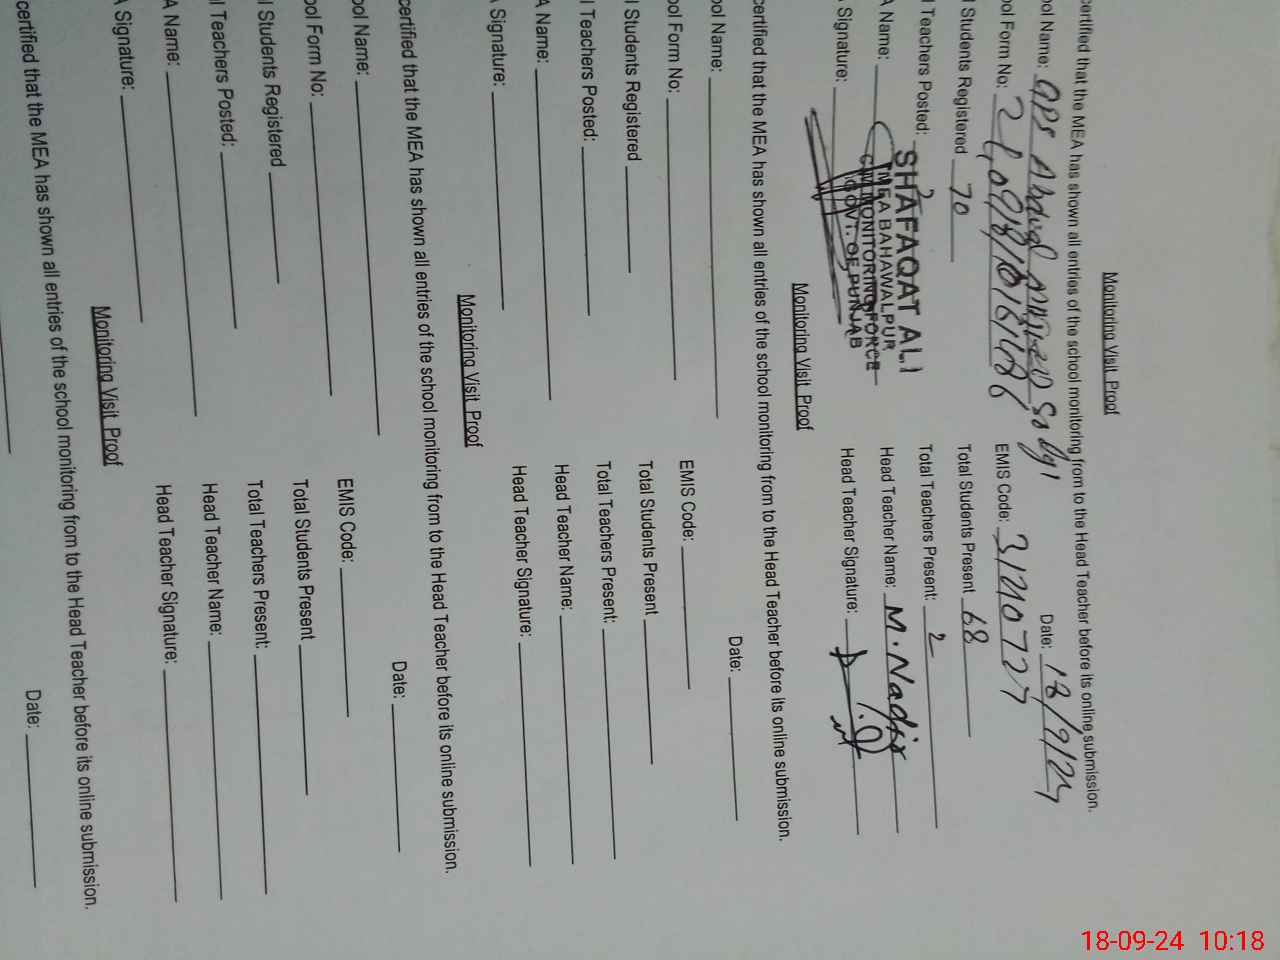 Monitoring Visit Proof
certified that the MEA has shown all entries of the school monitoring from to the Head Teacher before its online submission.
ool Name: GPS Abdul Date: 18/9/24
ool Form No: EMIS Code: 31210727
l Students Registered 70 Total Students Present 68
l Teachers Posted: 2 Total Teachers Present: 2
A Name: Head Teacher Name: M. Nadir
A Signature: Head Teacher Signature:
SHAFAQAT ALI
MEA BAHAWALPUR
CM MONITORING FORCE
GOVT. OF PUNJAB
Monitoring Visit Proof
certified that the MEA has shown all entries of the school monitoring from to the Head Teacher before its online submission.
ool Name: Date:
ool Form No: EMIS Code:
l Students Registered Total Students Present
l Teachers Posted: Total Teachers Present:
A Name: Head Teacher Name:
A Signature: Head Teacher Signature:
Monitoring Visit Proof
certified that the MEA has shown all entries of the school monitoring from to the Head Teacher before its online submission.
ool Name: Date:
ool Form No: EMIS Code:
l Students Registered Total Students Present
l Teachers Posted: Total Teachers Present:
A Name: Head Teacher Name:
A Signature: Head Teacher Signature:
Monitoring Visit Proof
certified that the MEA has shown all entries of the school monitoring from to the Head Teacher before its online submission.
Date:
18-09-24 10:18